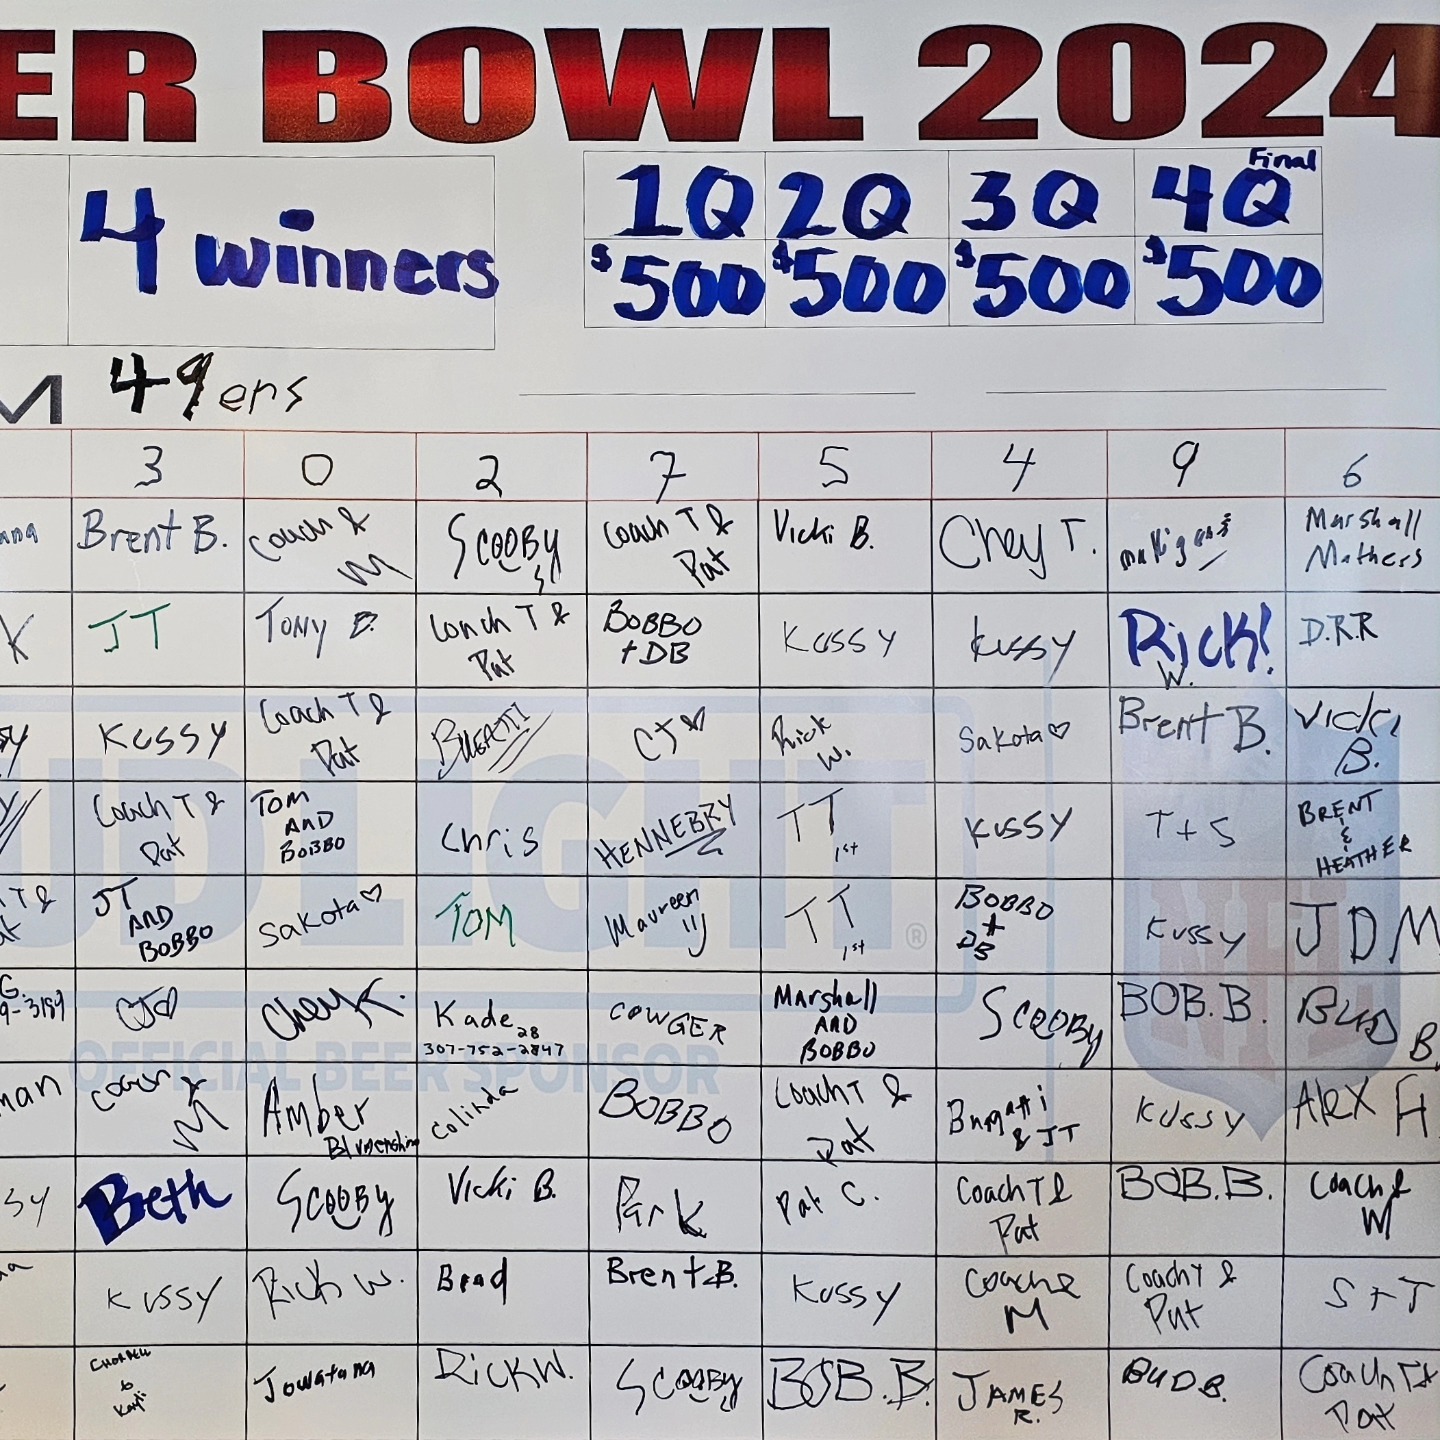 ER BOWL 2024
4 winners
1Q 2Q 3Q 4Q Final
$500 $500 $500 $500
M 49ers
3 0 2 7 5 4 9 6
ana Brent B. Coach & M SCOOBY Coach T & Pat Vicki B. Chey T. Marshall Mathers
K JT TONY B. Coach T & Pat BOBBO + DB KUSSY KUSSY Rick! W. D.R.R
sy KUSSY Coach T & Pat BUGATTI CJ♡ Rick W. Sakota♡ Brent B. Vicki B.
Coach T & Pat TOM AND BOBBO Chris HENNEBRY TT 1st KUSSY T+S BRENT & HEATHER
T & at JT AND BOBBO Sakota♡ TOM Maureen TT 1st BOBBO + DB KUSSY JDM
G. 9-3189 CJ♡ Chey K. Kade 28 307-752-2847 COWGER Marshall AND BOBBO SCOOBY BOB.B. BUD B.
man Coach & M Amber Colinda BOBBO Coach T & Pat Bugatti & JT KUSSY Alex H
sy Beth SCOOBY Vicki B. Pat C. Coach T & Pat BOB.B. Coach & M
KUSSY Rick W. Brad Brent B. KUSSY Coach & M Coach T & Pat S+T
Jowatana RICK W. SCOOBY BOB.B. JAMES R. BUD B. Coach T & Pat
UD LIGHT ®
OFFICIAL BEER SPONSOR
NFL